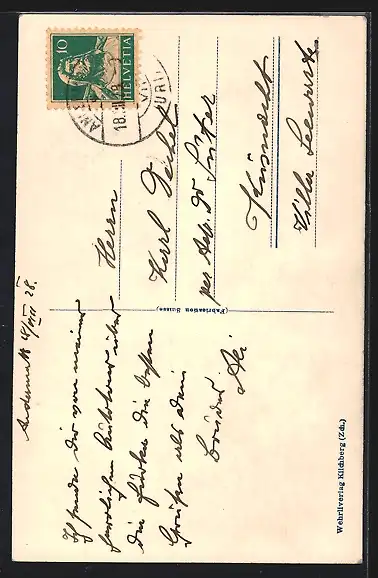 10
HELVETIA
18.VIII.28
(URI)
Andermatt 18/VIII 28.
Ich sende Dir von meiner
herrlichen Autotour über
die Furka die besten
Grüsse als dein
Bruder
Herrn
Karl
per Adr. Dr. Suter
Küsnacht
Villa Seewarte
(Fabrication Suisse)
Wehrliverlag Kilchberg (Zch.)